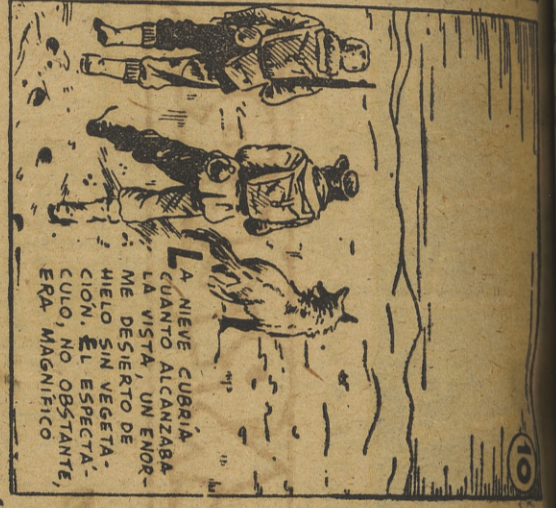 10
LA NIEVE CUBRÍA
CUANTO ALCANZABA
LA VISTA, UN ENOR-
ME DESIERTO DE
HIELO SIN VEGETA-
CIÓN. EL ESPECTÁ-
CULO, NO OBSTANTE,
ERA MAGNÍFICO